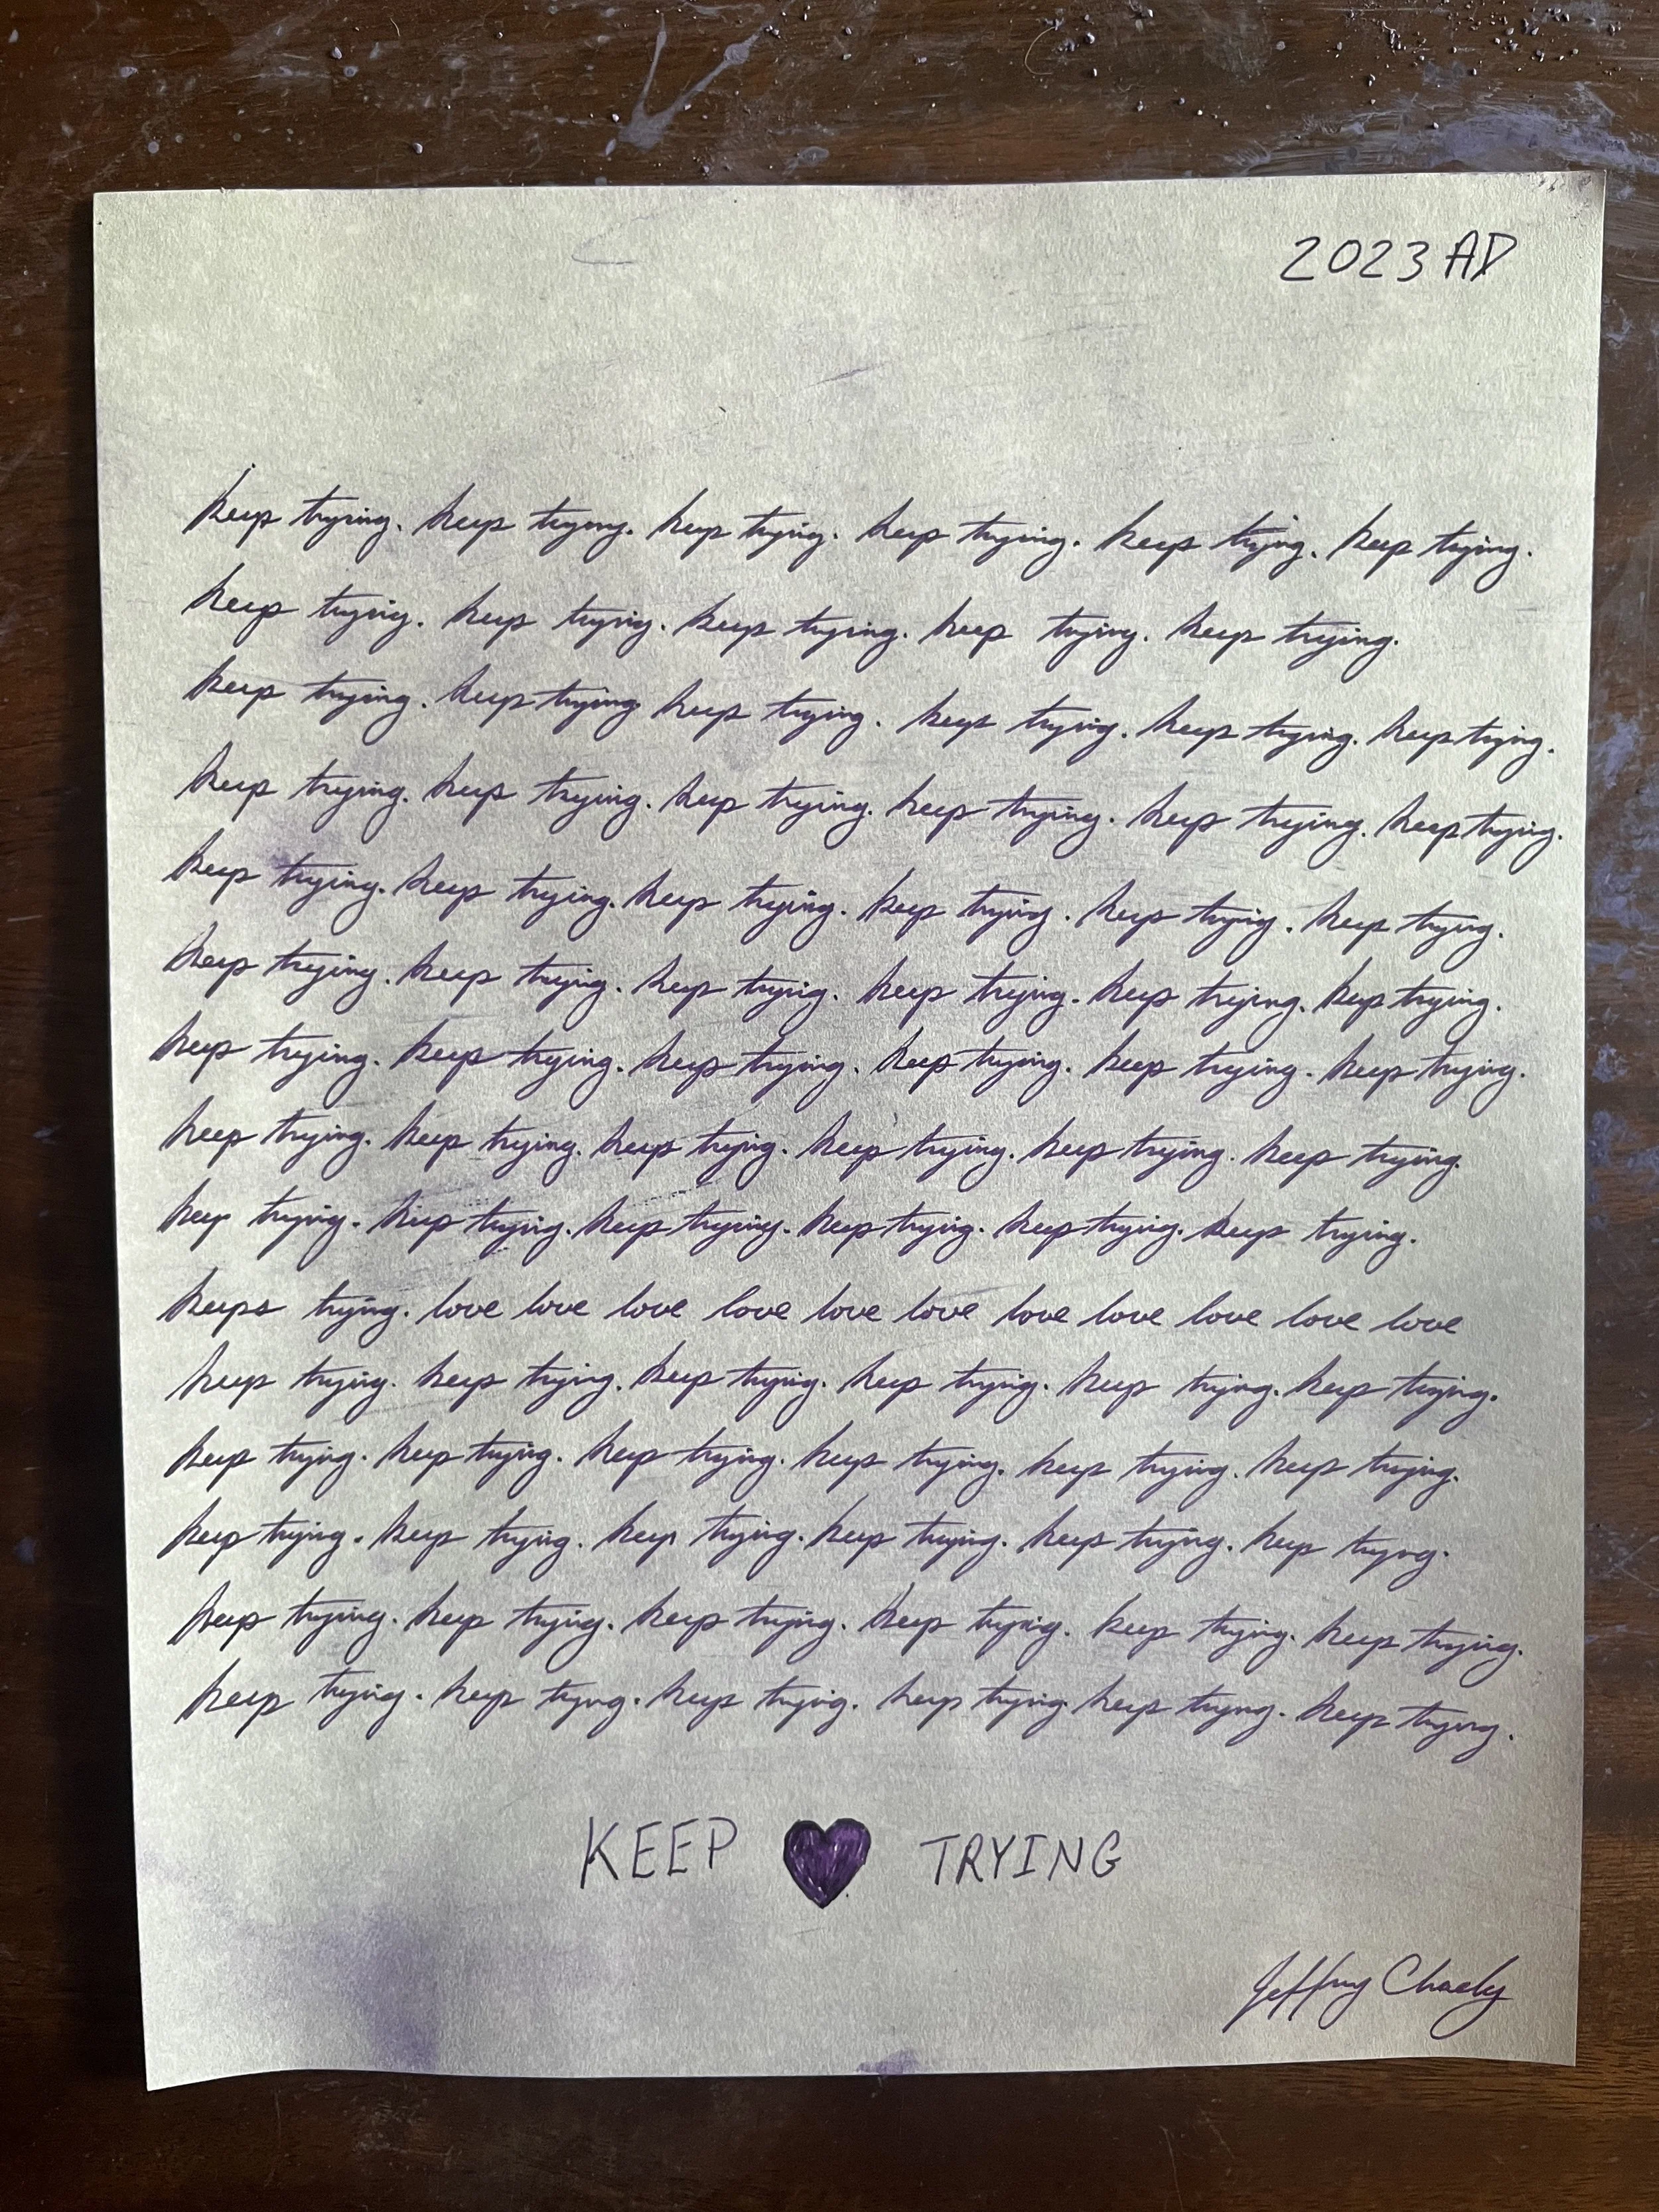 2023 AD
keep trying. keep trying. keep trying. keep trying. keep trying. keep trying.
keep trying. keep trying. keep trying. keep trying. keep trying.
keep trying. keep trying keep trying. keep trying. keep trying. keep trying.
keep trying. keep trying. keep trying. keep trying. keep trying. keep trying.
keep trying. keep trying. keep trying. keep trying. keep trying. keep trying.
keep trying. keep trying. keep trying. keep trying. keep trying. keep trying.
keep trying. keep trying. keep trying. keep trying. keep trying. keep trying.
keep trying. keep trying. keep trying. keep trying. keep trying. keep trying.
keep trying. keep trying. keep trying. keep trying. keep trying. keep trying.
keep trying. love love love love love love love love love love love
keep trying. keep trying. keep trying. keep trying. keep trying. keep trying.
keep trying. keep trying. keep trying. keep trying. keep trying. keep trying.
keep trying. keep trying. keep trying. keep trying. keep trying. keep trying.
keep trying. keep trying. keep trying. keep trying. keep trying. keep trying.
keep trying. keep trying. keep trying. keep trying keep trying. keep trying.
KEEP TRYING